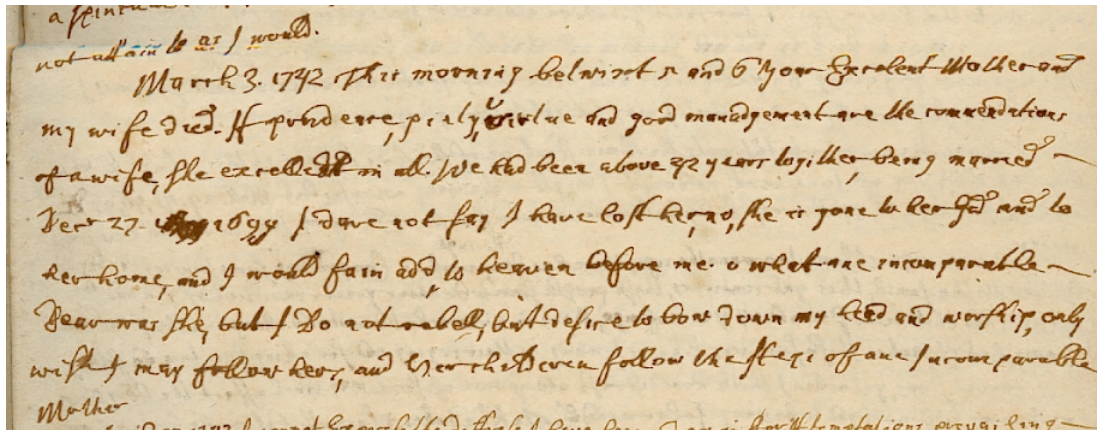 not attain to as I would.
March 3. 1732 This morning betwixt 5 and 6 your Excelent Mother and
my wife died. If prudence, piety, virtue and good managdement are the commendations
of a wife, she excelled in all. We had been above 32 years togither, being married
Decr 27. 1699 I dare not say I have lost her, no, she is gone to her God and to
her home, and I would fain add to heaven before me. o what ane incomparable
Dear was she, but I Do not rebell, but desire to bow down my head and worship, only
wish I may follow her, and her childeren follow the steps of ane Incomparable
Mother